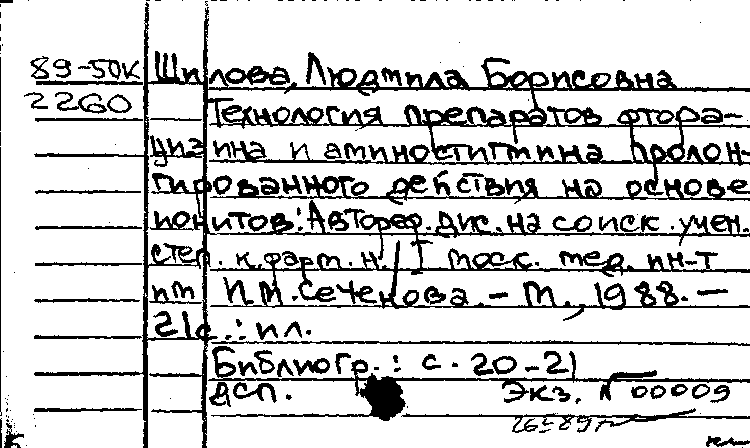 89-50к Шилова, Людмила Борисовна
2260 Технология препаратов фтора-
цизина и аминостигмина пролон-
гированного действия на основе
ионитов: Автореф. дис. на соиск. учен.
степ. к. фарм. н. / I моск. мед. ин-т
им И.М. Сеченова. – М., 1988. –
21с.: ил.
Библиогр.: с. 20-21
ДСП. Экз. № 00009